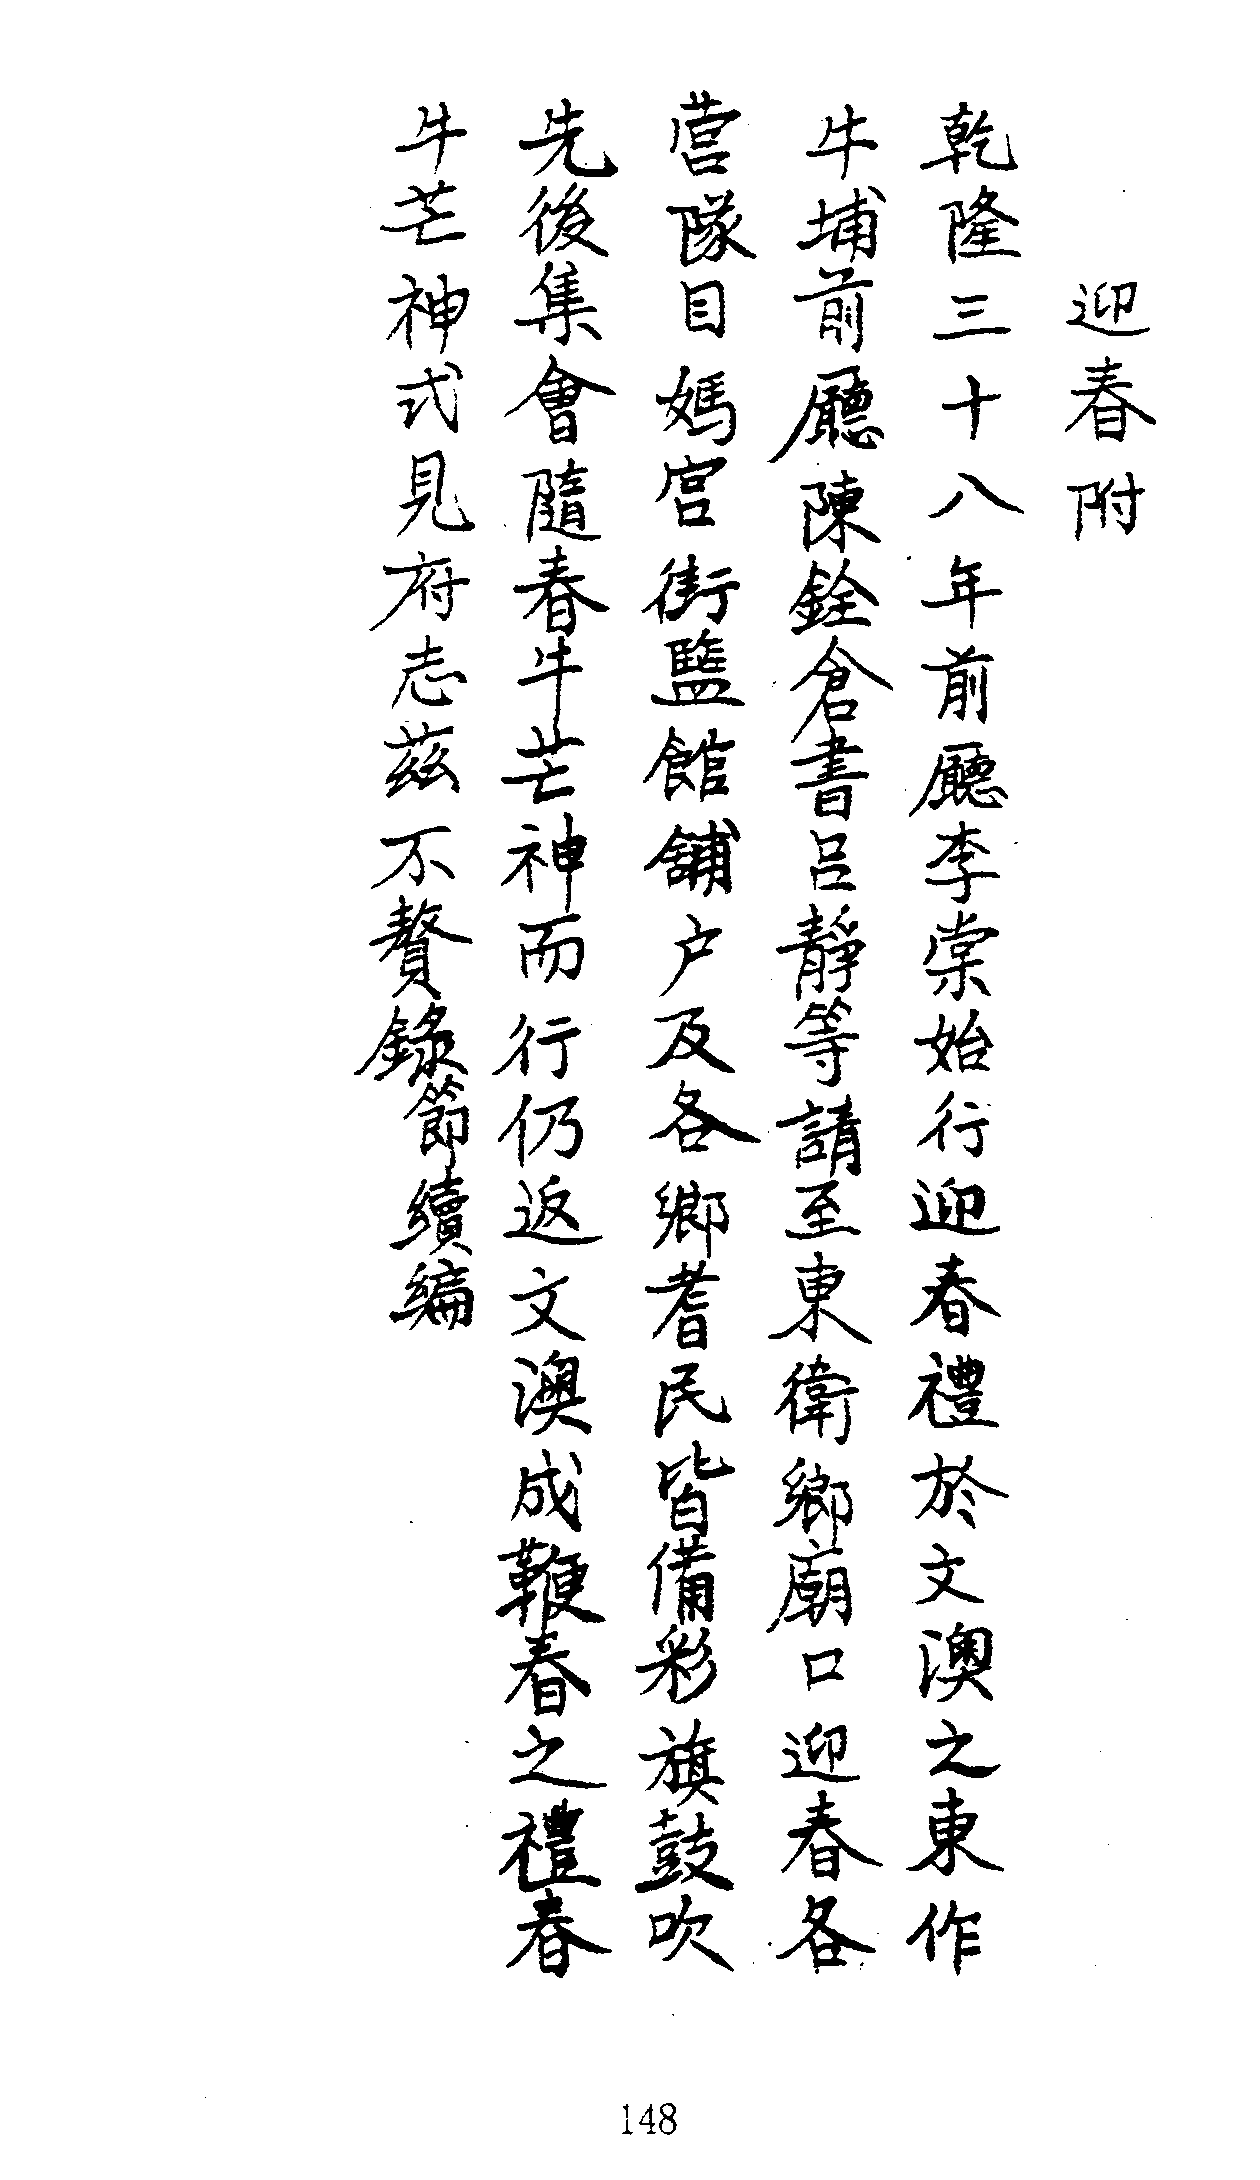 迎春附
乾隆三十八年前廳李棠始行迎春禮於文澳之東作
牛埔前廳陳銓倉書呂靜等請至東衛鄉廟口迎春各
营隊目媽宮街鹽館舖户及各鄉耆民皆備彩旗鼓吹
先後集會隨春牛芒神而行仍返文澳成鞭春之禮春
牛芒神式見府志茲不贅錄節續編
148